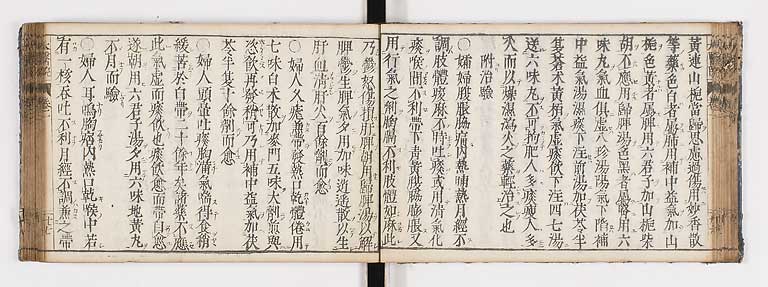 黃連山梔當歸思慮過傷用妙香散
等藥色白者屬肺用補中益氣加山
梔色黃者屬脾用六君子加山梔柴
胡不應用歸脾湯色黑者屬腎用六
味丸氣血俱虛八珍湯陽氣下陷補
中益氣湯濕痰下注前湯加茯苓半
夏蒼朮黃栢氣虛痰飲下注四七湯
送六味丸不可拘肥人多痰瘦人多
火而以燥濕瀉火之藥輕治之也
附治驗
○孀婦腹脹脇痛內熱晡熱月經不
調肢體痠麻不時吐痰或用清氣化
痰喉間不利帶下青黃腹脇膨脹又
用行氣之劑胸膈不利肢體如麻此
乃鬱怒傷損肝脾朝用歸脾湯以解
脾鬱生脾氣夕用加味逍遙散以生
肝血清肝火百餘劑而愈
○婦人久瘧兼帶發熱口乾體倦用
七味白朮散加麥門五味大劑煎與
恣飲再發稍可乃用補中益氣加茯
苓半夏十餘劑而愈
○婦人頭暈吐痰胸滿氣喘得食稍
緩苦於白帶二十餘年矣諸藥不應
此氣虛而痰飲也痰飲愈而帶自愈
遂朝用六君子湯夕用六味地黃丸
不月而驗
○婦人耳鳴胸痞內熱口乾喉中若
有一核吞吐不利月經不調兼之帶